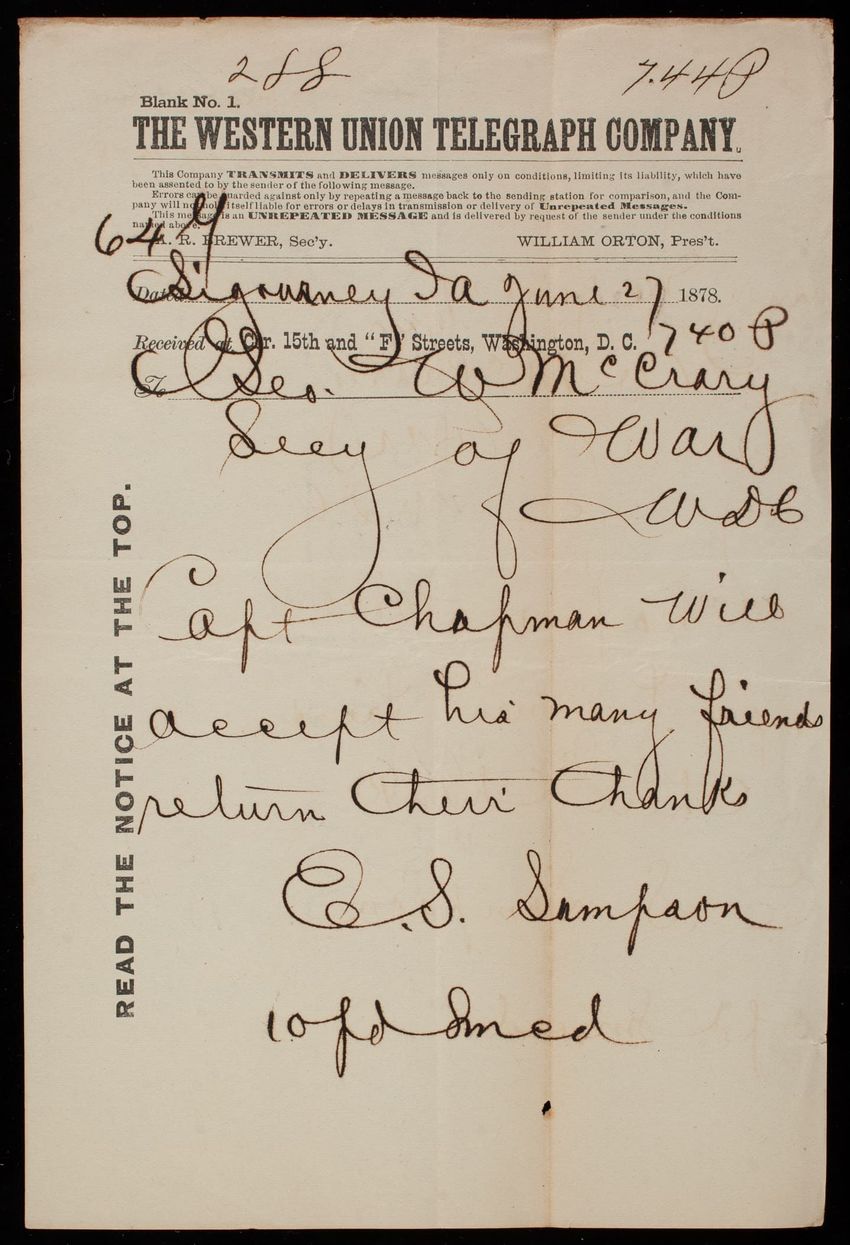 288 7.44 P
Blank No. 1.
THE WESTERN UNION TELEGRAPH COMPANY.
This Company TRANSMITS and DELIVERS messages only on conditions, limiting its liability, which have
been assented to by the sender of the following message.
Errors can be guarded against only by repeating a message back to the sending station for comparison, and the Com-
pany will not hold itself liable for errors or delays in transmission or delivery of Unrepeated Messages.
This message is an UNREPEATED MESSAGE and is delivered by request of the sender under the conditions
named above.
64 Y
A. R. BREWER, Sec'y. WILLIAM ORTON, Pres't.
Dated Sigourney Ia June 27 1878.
Received at Cor. 15th and "F" Streets, Washington, D. C. 740 P
To Geo. W McCrary
Secy of War
WDC
Capt Chapman will
accept his many friends
return their thanks
E. S. Sampson
10 pd
READ THE NOTICE AT THE TOP.